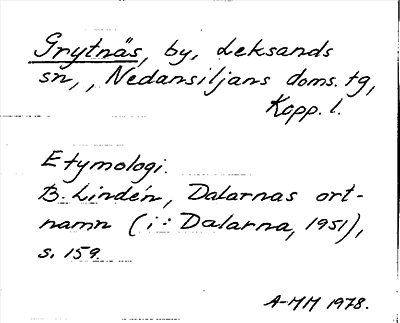 Grytnäs, by, Leksands
sn, , Nedansiljans doms. tg,
Kopp. l.
Etymologi.
B. Lindén, Dalarnas ort-
namn (i: Dalarna, 1951),
s. 159.
A-MM 1978.